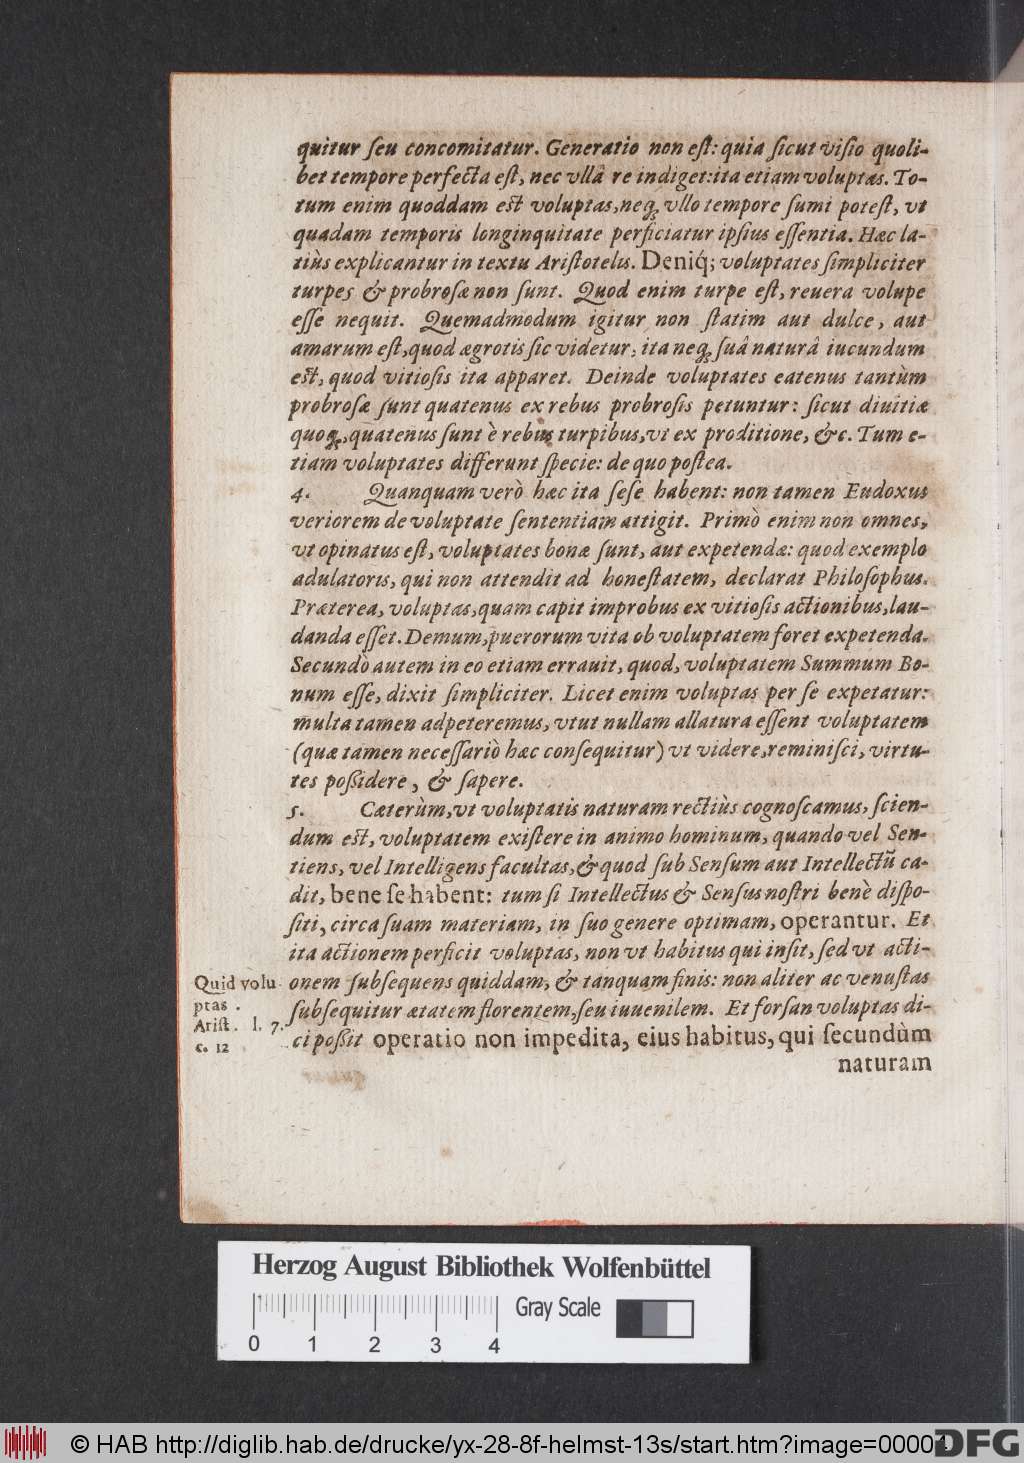 quitur ſeu concomitatur. Generatio non eſt: quia ſicut viſio quoli-
bet tempore perfecta eſt, nec vllâ re indiget: ita etiam voluptas. To-
tum enim quoddam eſt voluptas, neq; vllo tempore ſumi poteſt, vt
quadam temporis longinquitate perficiatur ipſius eſſentia. Hæc la-
tiùs explicantur in textu Ariſtotelis. Deniq́; voluptates ſimpliciter
turpes & probroſæ non ſunt. Quod enim turpe eſt, reuera volupe
eſſe nequit. Quemadmodum igitur non ſtatim aut dulce, aut
amarum eſt, quod ægrotis ſic videtur, ita neq; ſuâ naturâ iucundum
eſt, quod vitioſis ita apparet. Deinde voluptates eatenus tantùm
probroſæ ſunt quatenus ex rebus probroſis petuntur: ſicut diuitiæ
quoq;, quatenus ſunt è rebus turpibus, vt ex proditione, &c. Tum e-
tiam voluptates differunt ſpecie: de quo poſtea.
4. Quanquam verò hæc ita ſeſe habent: non tamen Eudoxus
veriorem de voluptate ſententiam attigit. Primò enim non omnes,
vt opinatus eſt, voluptates bonæ ſunt, aut expetendæ: quod exemplo
adulatoris, qui non attendit ad honeſtatem, declarat Philoſophus.
Præterea, voluptas, quam capit improbus ex vitioſis actionibus, lau-
danda eſſet. Demum, puerorum vita ob voluptatem foret expetenda.
Secundò autem in eo etiam errauit, quod, voluptatem Summum Bo-
num eſſe, dixit ſimpliciter. Licet enim voluptas per ſe expetatur:
multa tamen adpeteremus, vtut nullam allatura eſſent voluptatem
(quæ tamen neceſſariò hæc conſequitur) vt videre, reminiſci, virtu-
tes poßidere, & ſapere.
5. Cæterùm, vt voluptatis naturam rectiùs cognoſcamus, ſcien-
dum eſt, voluptatem exiſtere in animo hominum, quando vel Sen-
tiens, vel Intelligens facultas, & quod ſub Senſum aut Intellectũ ca-
dit, bene ſe habent: tum ſi Intellectus & Senſus noſtri benè diſpo-
ſiti, circa ſuam materiam, in ſuo genere optimam, operantur. Et
ita actionem perficit voluptas, non vt habitus qui inſit, ſed vt acti-
onem ſubſequens quiddam, & tanquam finis: non aliter ac venuſtas
ſubſequitur ætatem florentem, ſeu iuuenilem. Et forſan voluptas di-
ci poßit operatio non impedita, eius habitus, qui ſecundùm
naturam
Quid volu
ptas.
Ariſt. l. 7.
c. 12
Herzog August Bibliothek Wolfenbüttel
Gray Scale
0 1 2 3 4
© HAB http://diglib.hab.de/drucke/yx-28-8f-helmst-13s/start.htm?image=00004
DFG